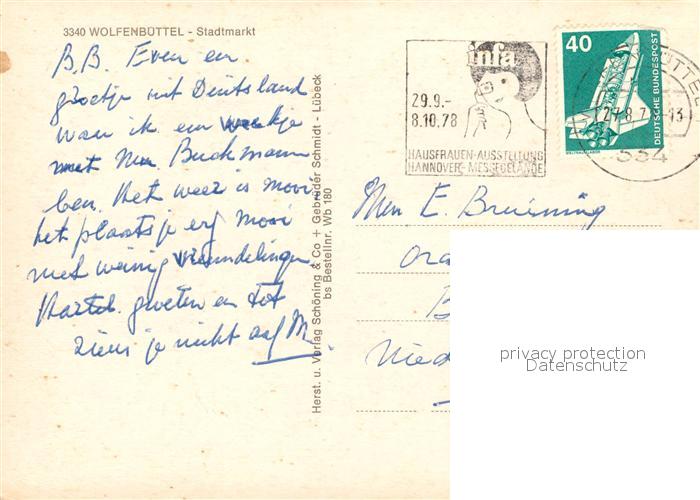 3340 WOLFENBÜTTEL - Stadtmarkt
B.B. Even een
groetje uit Duitsland
waar ik een weekje
met Buckmann
ben. Het weer is mooi
het plaatsje erg mooi
met weinig
Hartel. groeten en tot
ziens je nicht
Herst. u. Verlag Schöning & Co + Gebrüder Schmidt - Lübeck
bs Bestellnr. Wb 180
infa
29.9.-
8.10.78
HAUSFRAUEN-AUSSTELLUNG
HANNOVER-MESSEGELÄNDE
40
DEUTSCHE BUNDESPOST
WELTRAUMLABOR
334
E. Bruining
Ora
B
Nied
privacy protection
Datenschutz